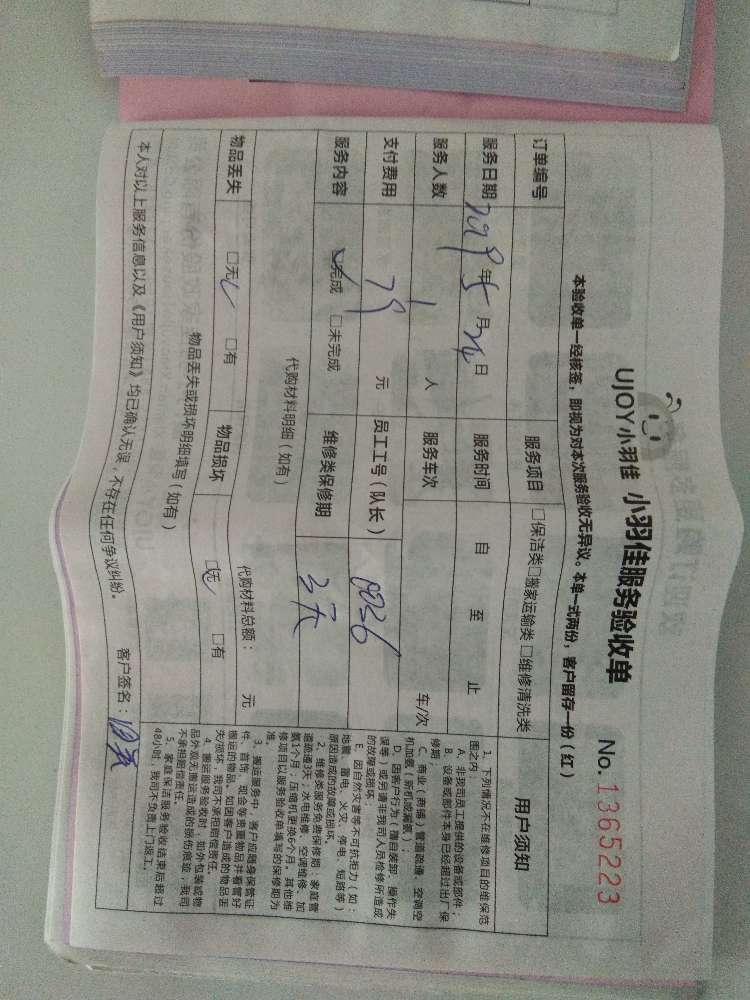 UJOY小羽佳 小羽佳服务验收单 No.1365223
本验收单一经核签，即视为对本次服务验收无异议。本单一式两份，客户留存一份（红）
订单编号 服务项目 □保洁类□搬家运输类 □维修清洗类
服务日期 2019年5月24日 服务时间 自 至 止
服务人数 1 人 服务车次 车/次
支付费用 79 元 员工工号（队长）
服务内容 □完成 □未完成 维修类保修期 3天
代购材料明细（如有） 代购材料总额： 元
物品丢失 □无 □有 物品损坏 □无 □有
物品丢失或损坏明细填写（如有）
本人对以上服务信息以及《用户须知》均已确认无误，不存在任何争议纠纷。 客户签名：
用户须知
1、下列情况不在维修项目的维保范
围之内：
A、非我司员工提供的设备或部件；
B、设备或部件本身已经超过出厂保
修期；
C、商业（商铺）管道疏通、空调空
机加氨（新机或漏氨）；
D、因客户行为（擅自装卸、操作失
误等）或另请非我司人员检修所造成
的故障或损坏
E、因自然灾害等不可抗拒力（如：
地震、雷电、火灾、停电、短路等）
原因造成的故障或损坏。
2、维修类服务免费保修期：家庭管
道疏通3天；水电维修、空调维修、加
氨1个月；压缩机更换6个月。其他维
修项目以服务验收单填写的保修期为
准。
3、搬运服务中，客户应随身保管证
件、首饰、现金等贵重物品并看管好
搬运的物品。如因客户造成的物品丢
失/损坏，我司不承担赔偿责任。
4、搬运服务验收时，如外包装或物
品外观无搬运造成的损伤痕迹，我司
不承担赔偿责任。
5、家庭保洁服务验收结束后超过
48小时，我司不负责上门返工。